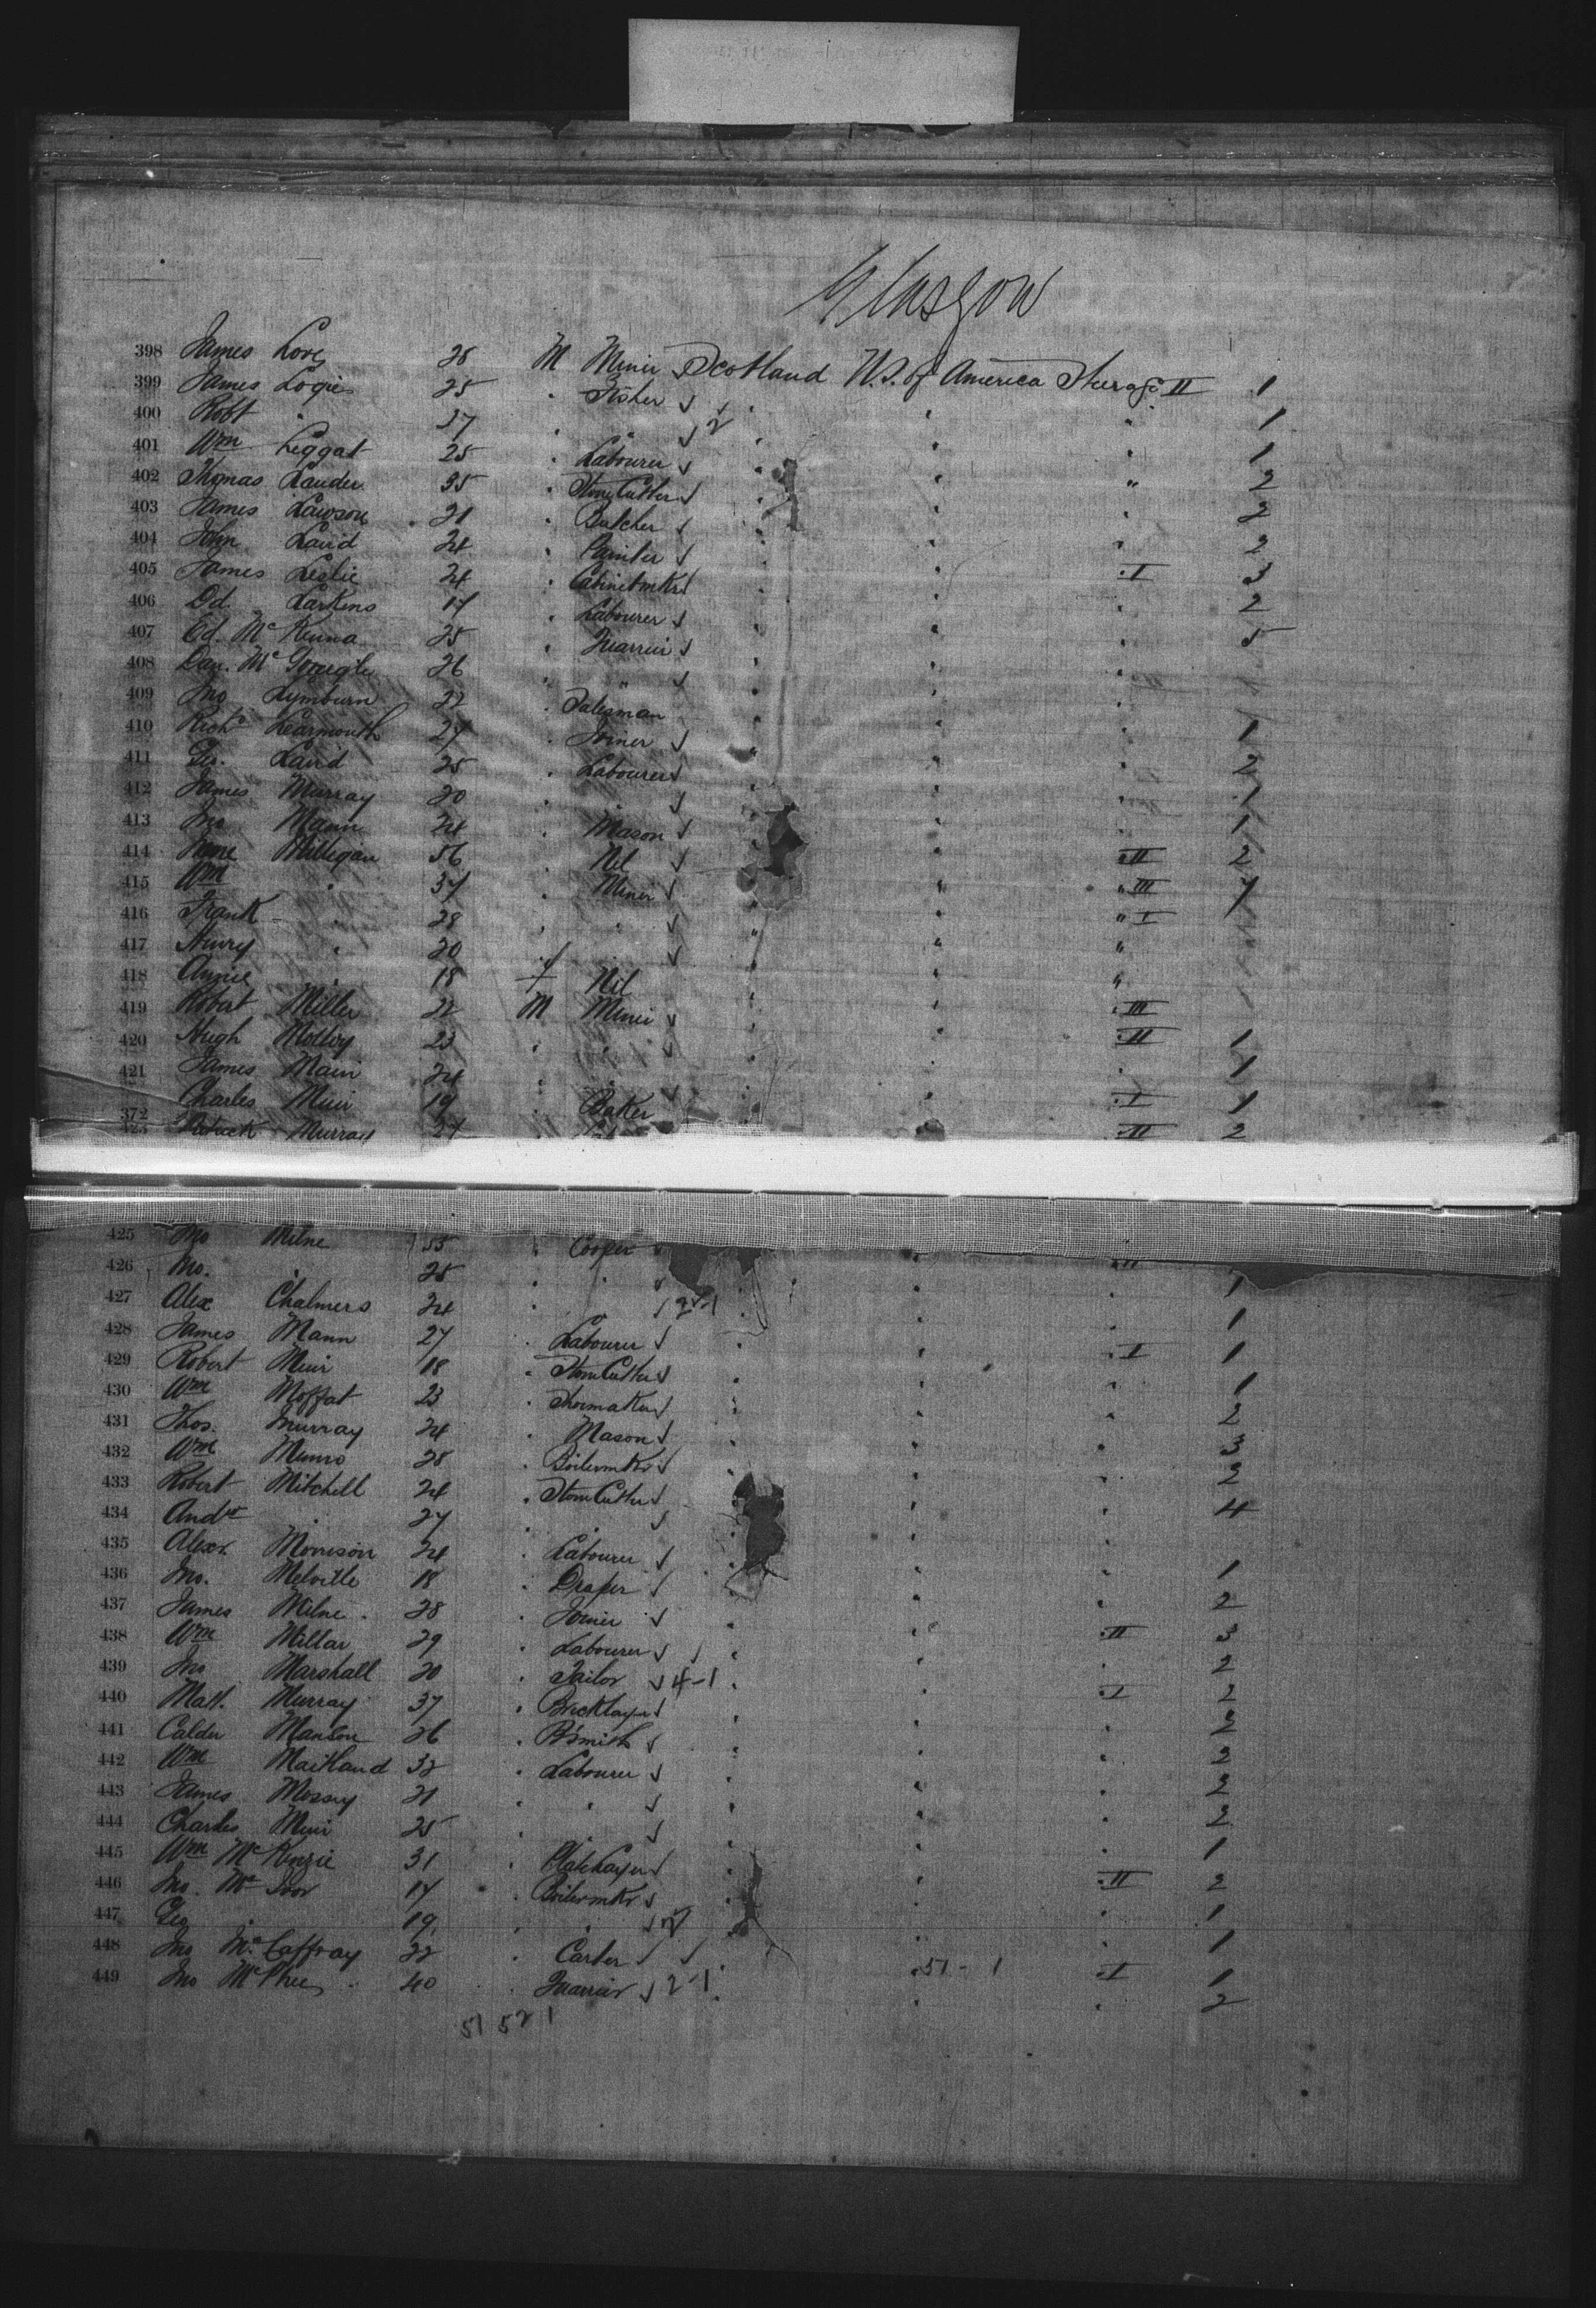 Glasgow
398 James Love 28 M Miner Scotland U.S. of America Steerage II 1
399 James Logie 25 " Fisher " " " 1
400 Robt " 37 " " 2 " " " 1
401 Wm Leggat 25 " Labourer " " " 2
402 Thomas Lauder 35 " Stone Cutter " " " 2
403 James Lawson 21 " Butcher " " " 2
404 John Laird 24 " Painter " " I 3
405 James Leslie 24 " Cabinetmkr " " " 2
406 Dd. Larkins 17 " Labourer " " " 5
407 Ed. McKenna 25 " Quarrier " " "
408 Dan. 26 " " " " "
409 Jno Lymburn 22 " Salesman " " " 1
410 Richd Learmonth 27 " Joiner " " " 2
411 Geo. Laird 25 " Labourer " " " 1
412 James Murray 20 " " " " " 1
413 Jno Mann 24 " Mason " II 2
414 Jane Milligan 56 Nil " III 7
415 Wm " 37 " Miner " " I
416 Frank " 28 " " " " "
417 Henry " 20 " " " " "
418 Annie " 18 f Nil " " III
419 Robert Miller 22 M Miner " " II 1
420 Hugh Molloy 23 " " " " " 1
421 James Main 24 " " " " I 1
372 Charles Muir 19 " Baker II 2
423 Patrick Murray 27
425 Jno Milne 35 " Cooper
426 Jno. " 28 " " " " 1
427 Alex Chalmers 24 " 2-1 " " " 1
428 James Mann 27 " Labourer " " I 1
429 Robert Muir 18 " Stone Cutter " " " 1
430 Wm Moffat 23 " Shoemaker " " " 2
431 Thos. Murray 24 " Mason " " " 3
432 Wm Munro 28 " Boilermkr " " " 2
433 Robert Mitchell 24 " Stone Cutter " " 4
434 Andw " 27 " " " " "
435 Alexr Morrison 24 " Labourer " " " 1
436 Jno. Melville 18 " Draper " " 2
437 James Milne 28 " Joiner " " II 3
438 Wm Millar 29 " Labourer " " " 2
439 Jno Marshall 20 " Tailor 4-1 " " I 2
440 Matt. Murray 37 " Bricklayer " " " 2
441 Calder Manson 26 " B'smith " " " 2
442 Wm Maitland 32 " Labourer " " " 2
443 James Massey 21 " " " " " 2
444 Charles Muir 25 " " " " " 1
445 Wm McKenzie 31 " Platelayer " " II 2
446 Jno. McIvor 17 " Boilermkr " " 1
447 Geo " 19 " " " " 1
448 Jno McCaffray 22 " Carter " 51-1 I 1
449 Jno McPhee 40 " Quarrier 2-1 " " 2
51 52 1